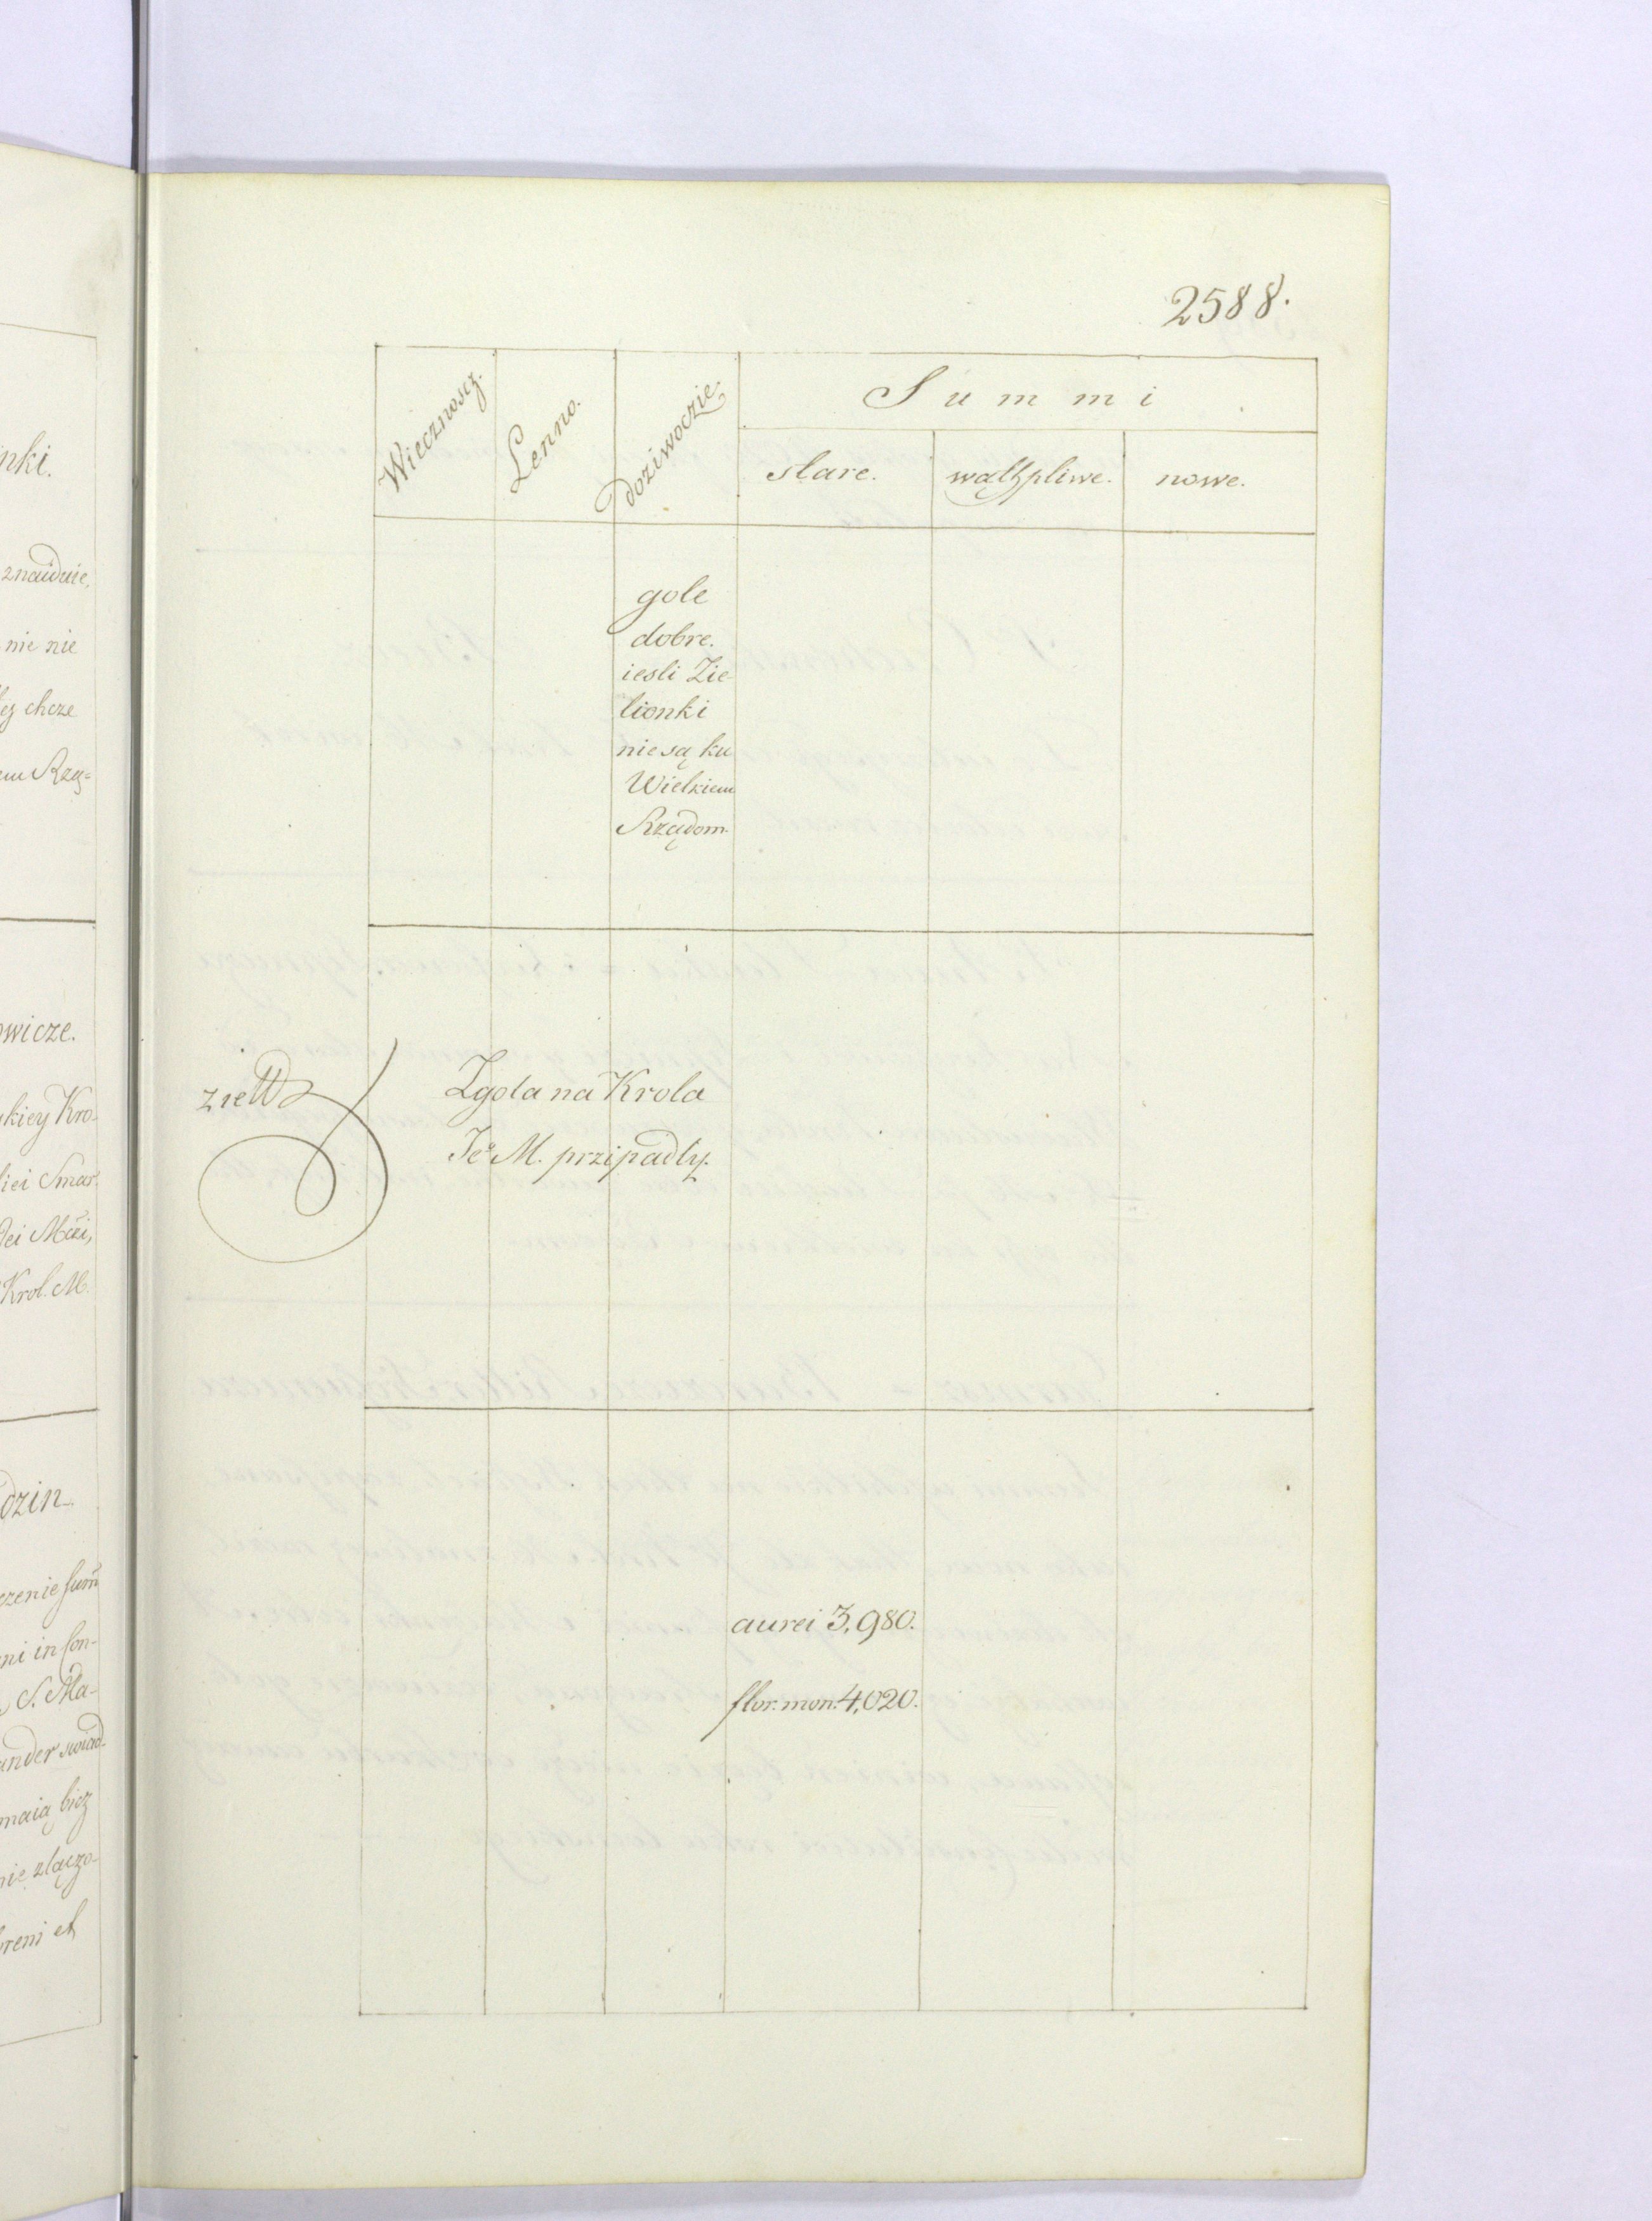 nki.
znaiduie,
nie nie
chcze
em Rzą=
wicze.
kiey Kro-
liei Smar.
Krol. M.
dzin
czenie sum̄
ni in Con-
S. Ma-
ander swiad-
maią bicz
nie złączo-
breni et
2588.
Wiecznoscz. Lenno. Doziwoczie. Summi
stare. wathpliwe. nowe.
gole
dobre.
iesli Zie-
lionki
nie są ku
Wielkiem
Rządom.
Zgola na Krola
Je° M. przipadly.
aurei 3,980.
flor. mon. 4,020.